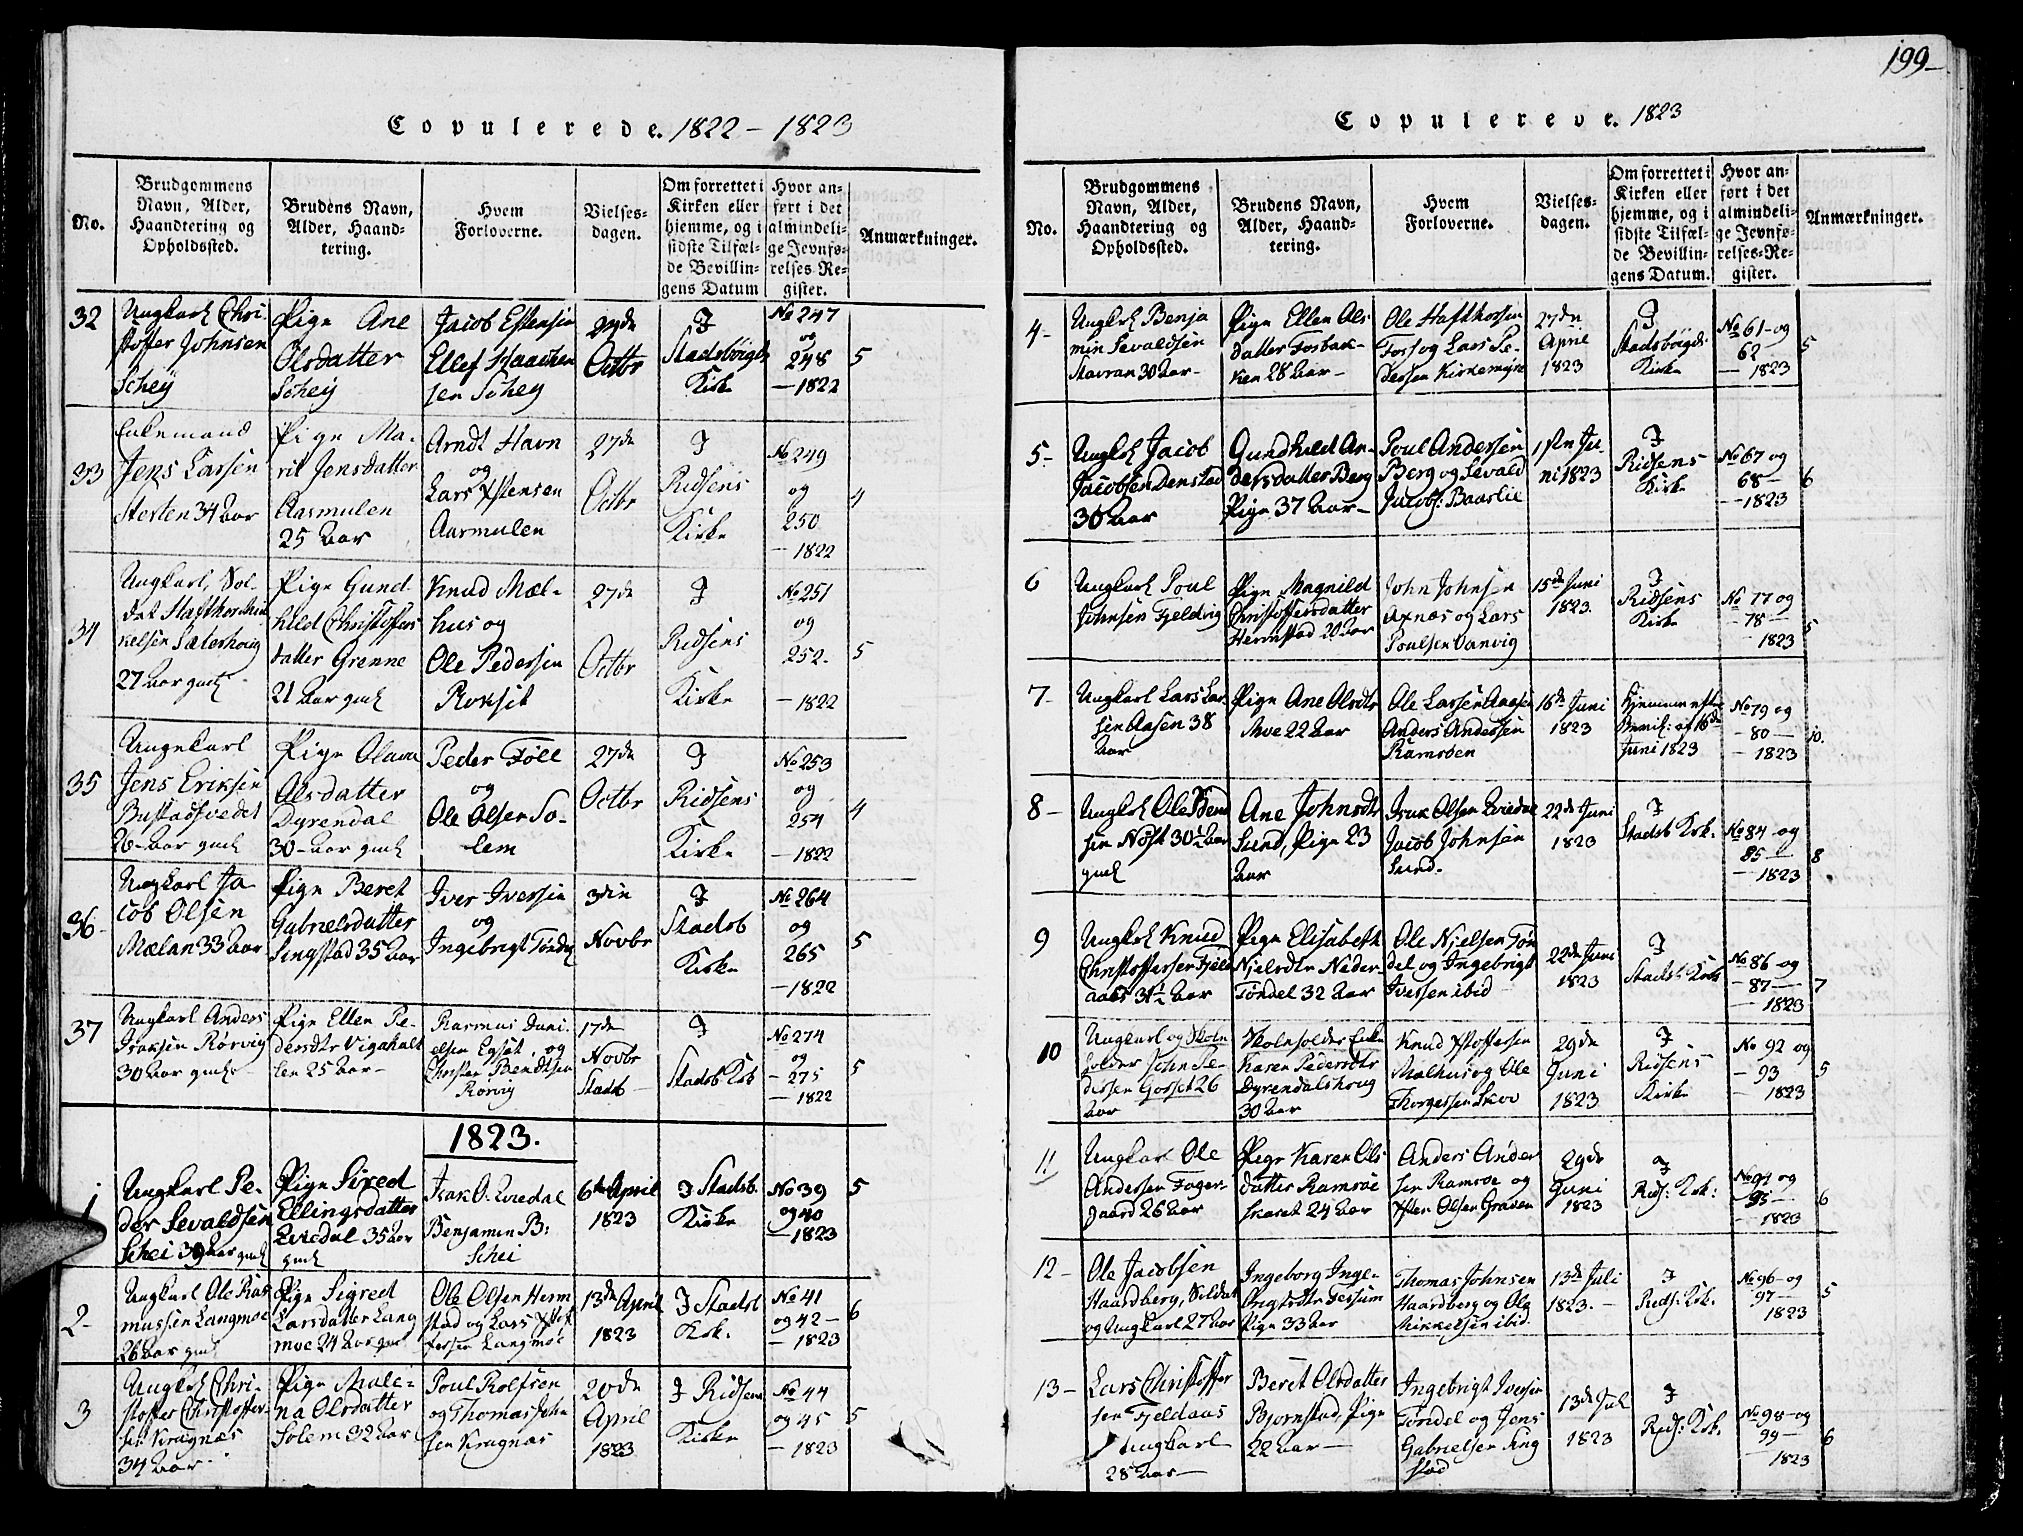 199
Copulerede. 1822 - 1823
No.
Brudgommens Navn, Alder, Haandtering og Opholdssted.
Brudens Navn, Alder, Haandtering.
Hvem Forloverne.
Vielsesdagen.
Om forrettet i Kirken eller hjemme, og i sidste Tilfælde Bevillingens Datum
Hvor anført i det almindelige Jevnførelses-Register.
Anmærkninger.
32
Ungkarl Chri-
stoffer Johnsen
Schey
Pige Ane
Olsdatter
Schey
Jacob Estensen
Ellef Haachen
sen Schey
27de
Octbr
I
Stadsbøigds
Kirke
No 247
og
248
— 1822
5
33
Enkemand
Jens Larsen
Hesten 34 Aar
Pige Ma-
rit Jensdatter
Aasmulen
25 Aar
Arndt Havn
og
Lars Xstensen
Aarmulen
27de
Octbr
I
Ridsens
Kirke
No 249
og
250
— 1822
4
34
Ungkarl, Sol-
dat Hafthor
kelsen Sæterhoug
27 Aar gml
Pige Gund-
hild Christoffers
datter Grenne
21 Aar gml
Knud Mæl-
hus og
Ole Pedersen
Roksæt
27de
Octbr
I
Ridsens
Kirke
No 251
og
252.
— 1822
5
35
Ungekarl
Jens Eriksen
Bustadsvedet
26 Aar gml
Pige Olava
Olsdatter
Dyrendal
30 Aar gml
Peder Föll
og
Ole Olsen So-
lem
27de
Octbr
I
Ridsens
Kirke
No 253
og
254
— 1822
4
36
Ungkarl Ja
cob Olsen
Mælan 33 Aar
Pige Beret
Gabrielsdatter
Singstad 35 Aar
Iver Iversen
og
Ingebrigt Tøndel
3die
Novbr
I
Stadsb
Kirke
No 264
og
265
— 1822
5
37
Ungkarl Anders
Isaksen Rørvig
30 Aar gml
Pige Ellen Pe-
dersdtr Vigahalt
len 25 Aar
Rasmus Dani-
elsen Egset, og
Christen Bendtsen
Rørvig
17de
Novbr
Stadsb
I
Stadsb Krk
No 274
og
— 275
— 1822
5
1823.
1
Ungkarl Pe-
der Sevaldsen
Schei 39 Aar gml
Pige Sired
Ellingsdatter
Qvedal 35 Aar
gml
Isak O. Qvedal
Benjamin B:
Schei
6te April
1823
I Stadsb.
Kirke
No 39
og 40
— 1823
5
2
Ungkarl Ole Ras
mussen Langmoe
26 Aar gml
Pige Sigred
Larsdatter Lang
moe 24 Aar gml
Ole Olsen Herm
stad og Lars Xstof
fersen Langmoe
13de April
1823
I Stadsb
Krk.
No 41
og 42
— 1823
6
3
Ungk Chri-
stoffer Christoffer-
sen Kragnæs
34 Aar
Pige Male-
na Olsdatter
Solem 32 Aar
Poul Rolfsen
og Thomas John
sen Kragnæs
20de
April
1823
I Ridsens
Kirke
No 44
og 45
— 1823
5
Copulerede. 1823
No.
Brudgommens Navn, Alder, Haandtering og Opholdssted.
Brudens Navn, Alder, Haandtering.
Hvem Forloverne.
Vielsesdagen.
Om forrettet i Kirken eller hjemme, og i sidste Tilfælde Bevillingens Datum.
Hvor anført i det almindelige Jevnførelses-Register.
Anmærkninger.
4
Ungk Benja
min Sevaldsen
Stavran 30 Aar
Pige Ellen Ols
datter Fosbak-
ken 28 Aar
Ole Hafthorsen
Foss og Lars Pe-
dersen Kirkemyre
27de
April
1823
I
Stadsbøgds
Kirke
No 61 og
62
— 1823
5
5
Ungk Jacob
Jacobsen Denstad
30 Aar
Gundhild An-
dersdatter Berg
Pige 37 Aar
Poul Andersen
Berg og Sevald
Jacobs: Baarlie
1ste Ju-
ni 1823
I
Ridsens
Kirke
No 67 og
68
— 1823
6
6
Ungkarl Poul
Johnsen Fjeldvig
Pige Magnild
Christoffersdatter
Hermstad 20 Aar
John Johnsen
Axnæs og Lars
Poulsen Vanvig
15de Juni
1823
I
Ridsens
Kirke
No 77 og
— 78
1823
5
7
Ungkarl Lars Lar
sen Aasen 38
Aar
Pige Ane Olsdtr
Moe 22 Aar
Ole Larsen Aasen
Anders Andersen
Ramsøen
16de Juni
1823
Hjemme efter
Bevil: af 16de
Juni 1823
No 79 og
— 80
— 1823
10.
8
Ungk Ole Bend
sen Nøst 30½ Aar
gml
Ane Johnsdtr
Sund, Pige 23
Aar
Isak Olsen Qvedal
Jacob Johnsen
Sund.
22de Juni
1823
I
Stadsb Krk.
No 84 og
85
— 1823
8
9
Ungk Knud
Christoffersen Fjeld
aas 31½ Aar
Pige Elisabeth
Nielsdtr Neder-
Tøndel 32 Aar
Ole Nielsen Tøn
del og Ingebrigt
Iversen ibid
22de Juni
1823
I
Stadsb: Krk
No 86 og
— 87
— 1823
7
10
Ungkarl og Skole
holder John Pe-
dersen Gosset 26
Aar
Skoleholder Enke
Karen Pedersdtr
Dyrendalshoug
30 Aar
Knud Xstoffersen
Malhus og Ole
Thorgersen Skoe
29de
Juni
1823
I
Ridsens
Kirke
No 92 og
— 93
— 1823
5
11
Ungkarl Ole
Andersen Fager-
gaard 26 Aar
Pige Karen Ols
datter Ramsøe
skaret 24 Aar
Anders Ander
sen Ramsøe og
Xsten Olsen Graven
29de
Juni
1823
I
Rids: Krk:
No 94 og
— 95
— 1823
6
12
Ole Jacobsen
Haardberg, Soldat
og Ungkarl 27 Aar
Ingeborg Inge-
brigtsdtr Fessum
Pige 33 Aar
Thomas Johnsen
Haardberg og Ole
Mikkelsen ibid
13de Juli
1823.
I
Rids: Krk.
No 96 og
97
1823
5
13
Lars Christoffer
sen Fjeldaas
Ungkarl
28 Aar
Beret Olsdatter
Bjørnstad, Pige
22 Aar
Ingebrigt Iversen
Tøndel og Jens
Gabrielsen Sing
stad
13de Jul
1823
I
Rids: Krk.
No 98 og
99
— 1823
6